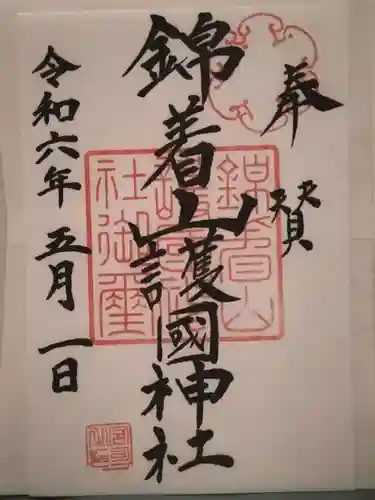 奉賛
錦着山護國神社
令和六年五月一日
錦着山護國神社御璽